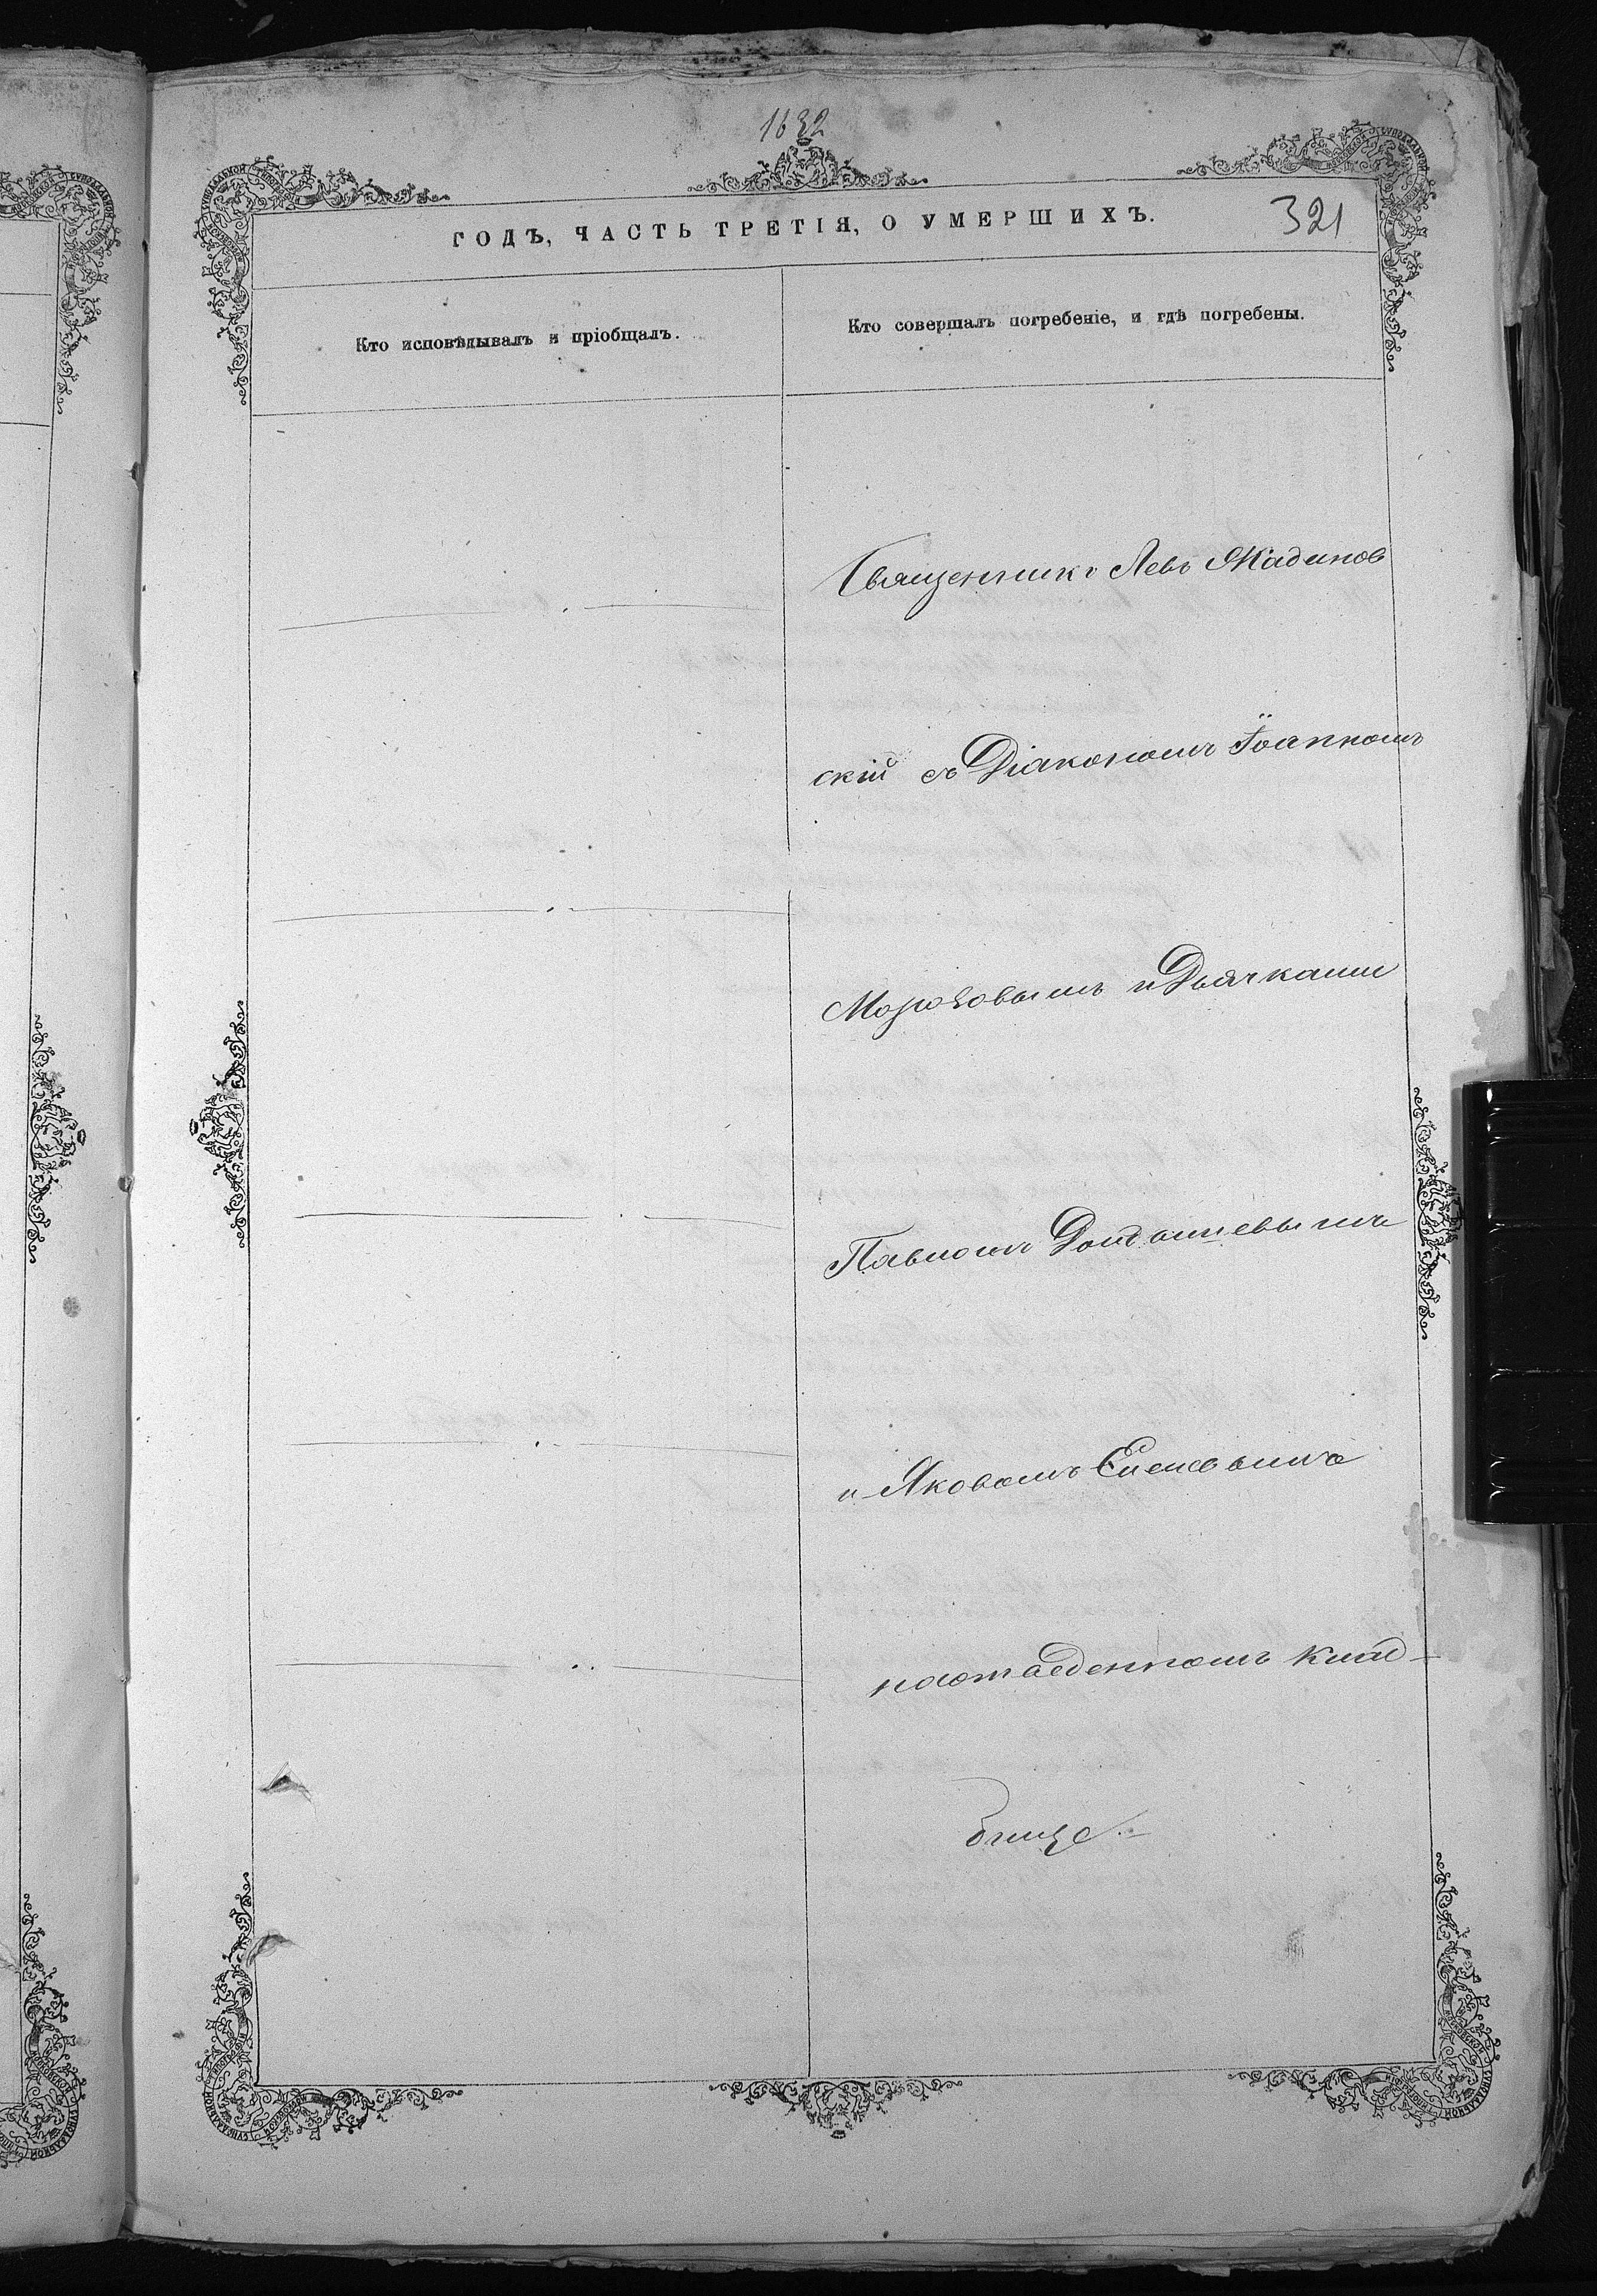 1632
ГОДЪ, ЧАСТЬ ТРЕТІЯ, О УМЕРШИХЪ.
321
Кто исповѣдывалъ и пріобщалъ.
Кто совершалъ погребеніе, и гдѣ погребены.
Священникъ Левъ Жадинов
скій съ Діакономъ Іоанномъ
Морозовымъ и Дьячками
Павломъ
и Яковомъ
клад
бищѣ.